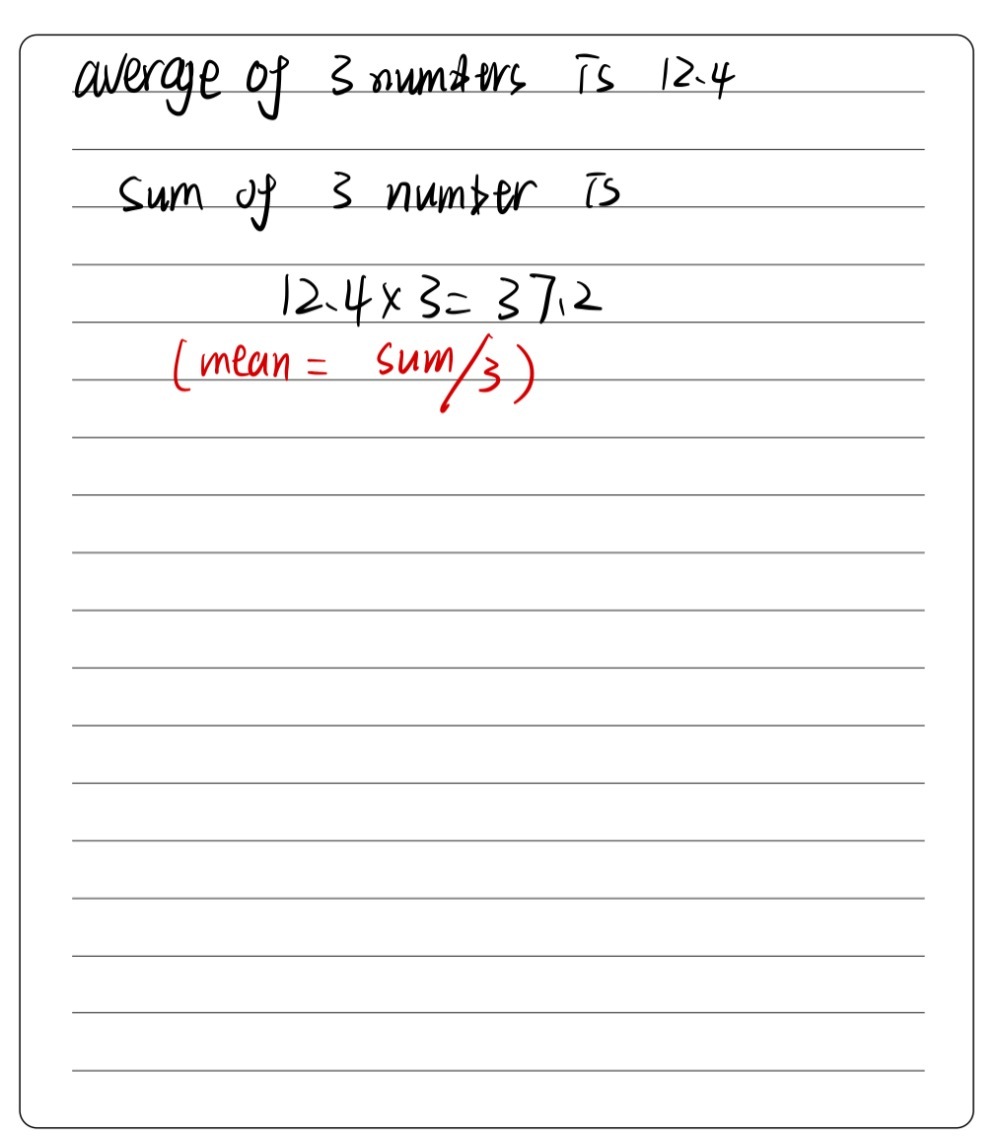 average of 3 numbers is 12.4
sum of 3 number is
12.4 × 3 = 37.2
(mean = sum/3)